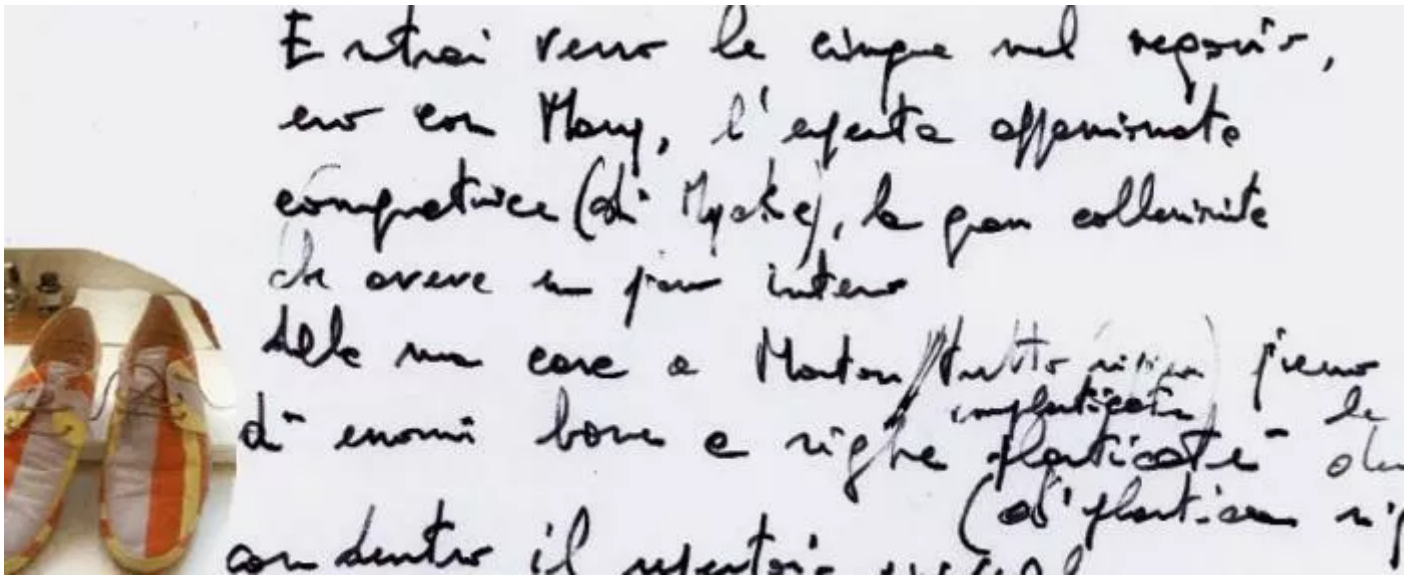 Entrai verso le cinque nel negozio,
ero con Mary, l'esperta appassionata
compratrice (di Myake), la gran collezionista
che aveva un piano intero
della sua casa a Marton tutto pieno
di enormi borse a righe plastificate
(di plastica
con dentro il repertorio